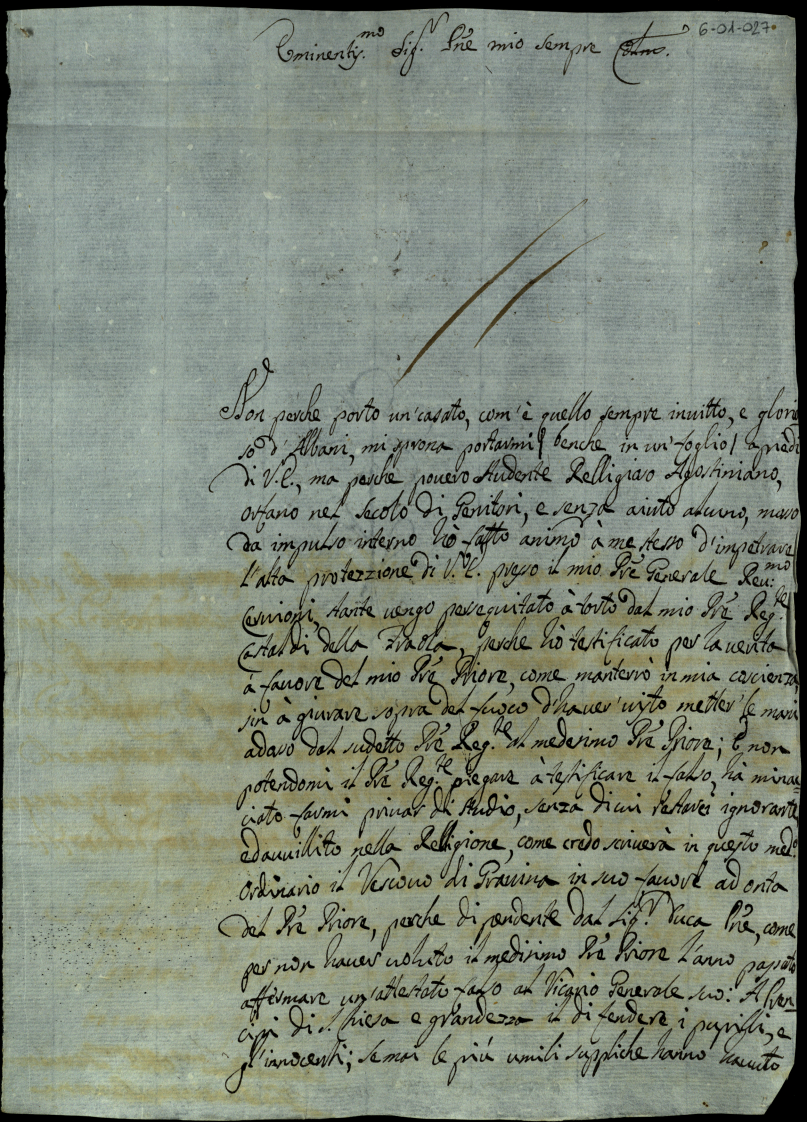 6-01-027
Eminentis.mo Sig.r Prñe mio sempre Colmo.
Non perche porto un'casato, com'è quello sempre invitto, e glorio
so d'Albani, mi sprona portarmi / benche in un'foglio / a piedi
di V.E., ma perche povero studente Relligioso Agostiniano,
orfano nel secolo di Genitori, e senza aiuto alcuno, mosso
da impulso interno hò fatto animo à me stesso d'impetrare
l'alta protezzione di V.E. presso il mio Prẽ Generale Rev:mo
Cervioni, stante vengo perseguitato à torto dal mio Prẽ Reg.te
Castaldi della Fraola, perche hò testificato per la verità
à favore del mio Prẽ Priore, come manterrò in mia coscienza,
sin à giurare sopra del fuoco d'haver'visto metter'le mani
adosso dal sudetto Prẽ Reg.te al medesimo Prẽ Priore; E non
potendomi il Prẽ Reg.te piegare à testificare il falso, hà minac=
ciato farmi privar di studio, senza di cui restarei ignorante
ed avvillito nella Relligione, come credo scriverà in questo med.o
ordinario il Vescovo di Gravina in suo favore ad onta
del Prẽ Priore, perche dipendente dal Sig.r Duca Prñe, come
per non haver voluto il medesimo Prẽ Priore l'anno passato
affirmare un'attestato falso al Vicario Generale suo: A Pren=
cipi di S. Chiesa e grandezza il difendere i pupilli, e
gl'innocenti; Se mai le più umili suppliche hanno havuto